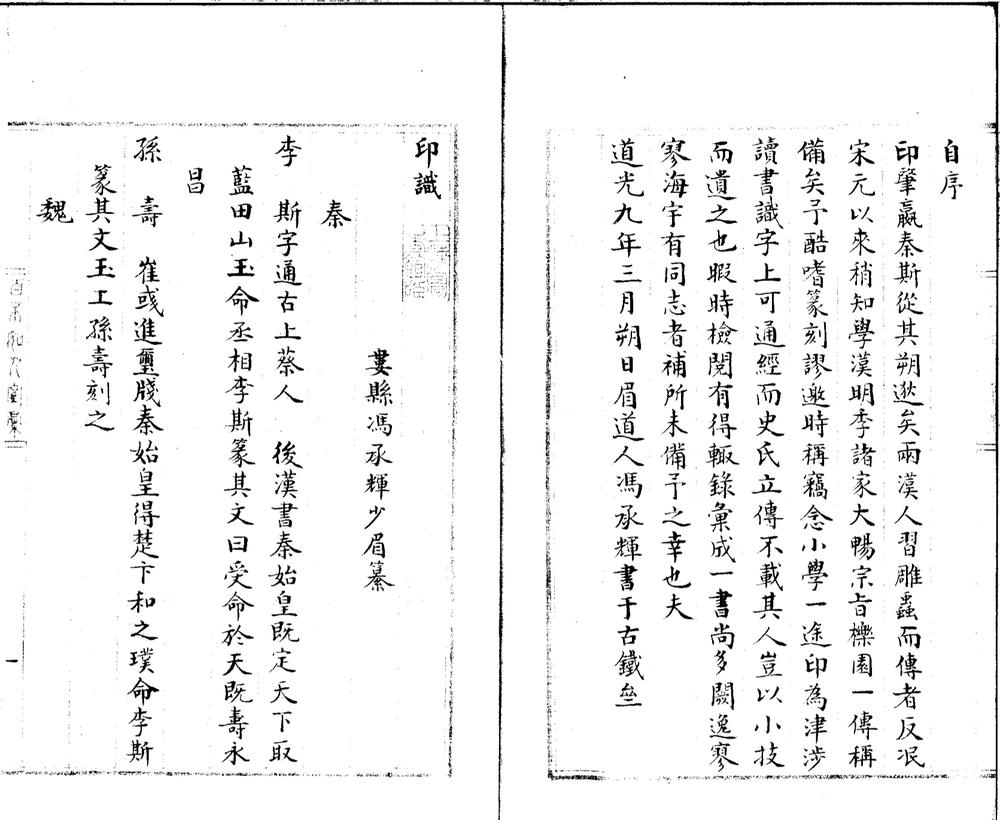 自序
印肇嬴秦斯從其朔逖矣兩漢人習雕蟲而傳者反泯
宋元以來稍知學漢明季諸家大暢宗旨櫟園一傳稱
備矣予酷嗜篆刻謬邀時稱竊念小學一途印為津涉
讀書識字上可通經而史氏立傳不載其人豈以小技
而遺之也暇時檢閱有得輒錄彙成一書尚多闕逸寥
寥海宇有同志者補所未備予之幸也夫
道光九年三月朔日眉道人馮承輝書于古鐵垒
印識
婁縣馮承輝少眉纂
秦
李斯字通古上蔡人 後漢書秦始皇既定天下取
藍田山玉命丞相李斯篆其文曰受命於天既壽永
昌
孫壽 崔彧進璽牋秦始皇得楚卞和之璞命李斯
篆其文玉工孫壽刻之
魏
一